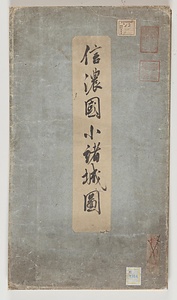 信濃國小諸城圖